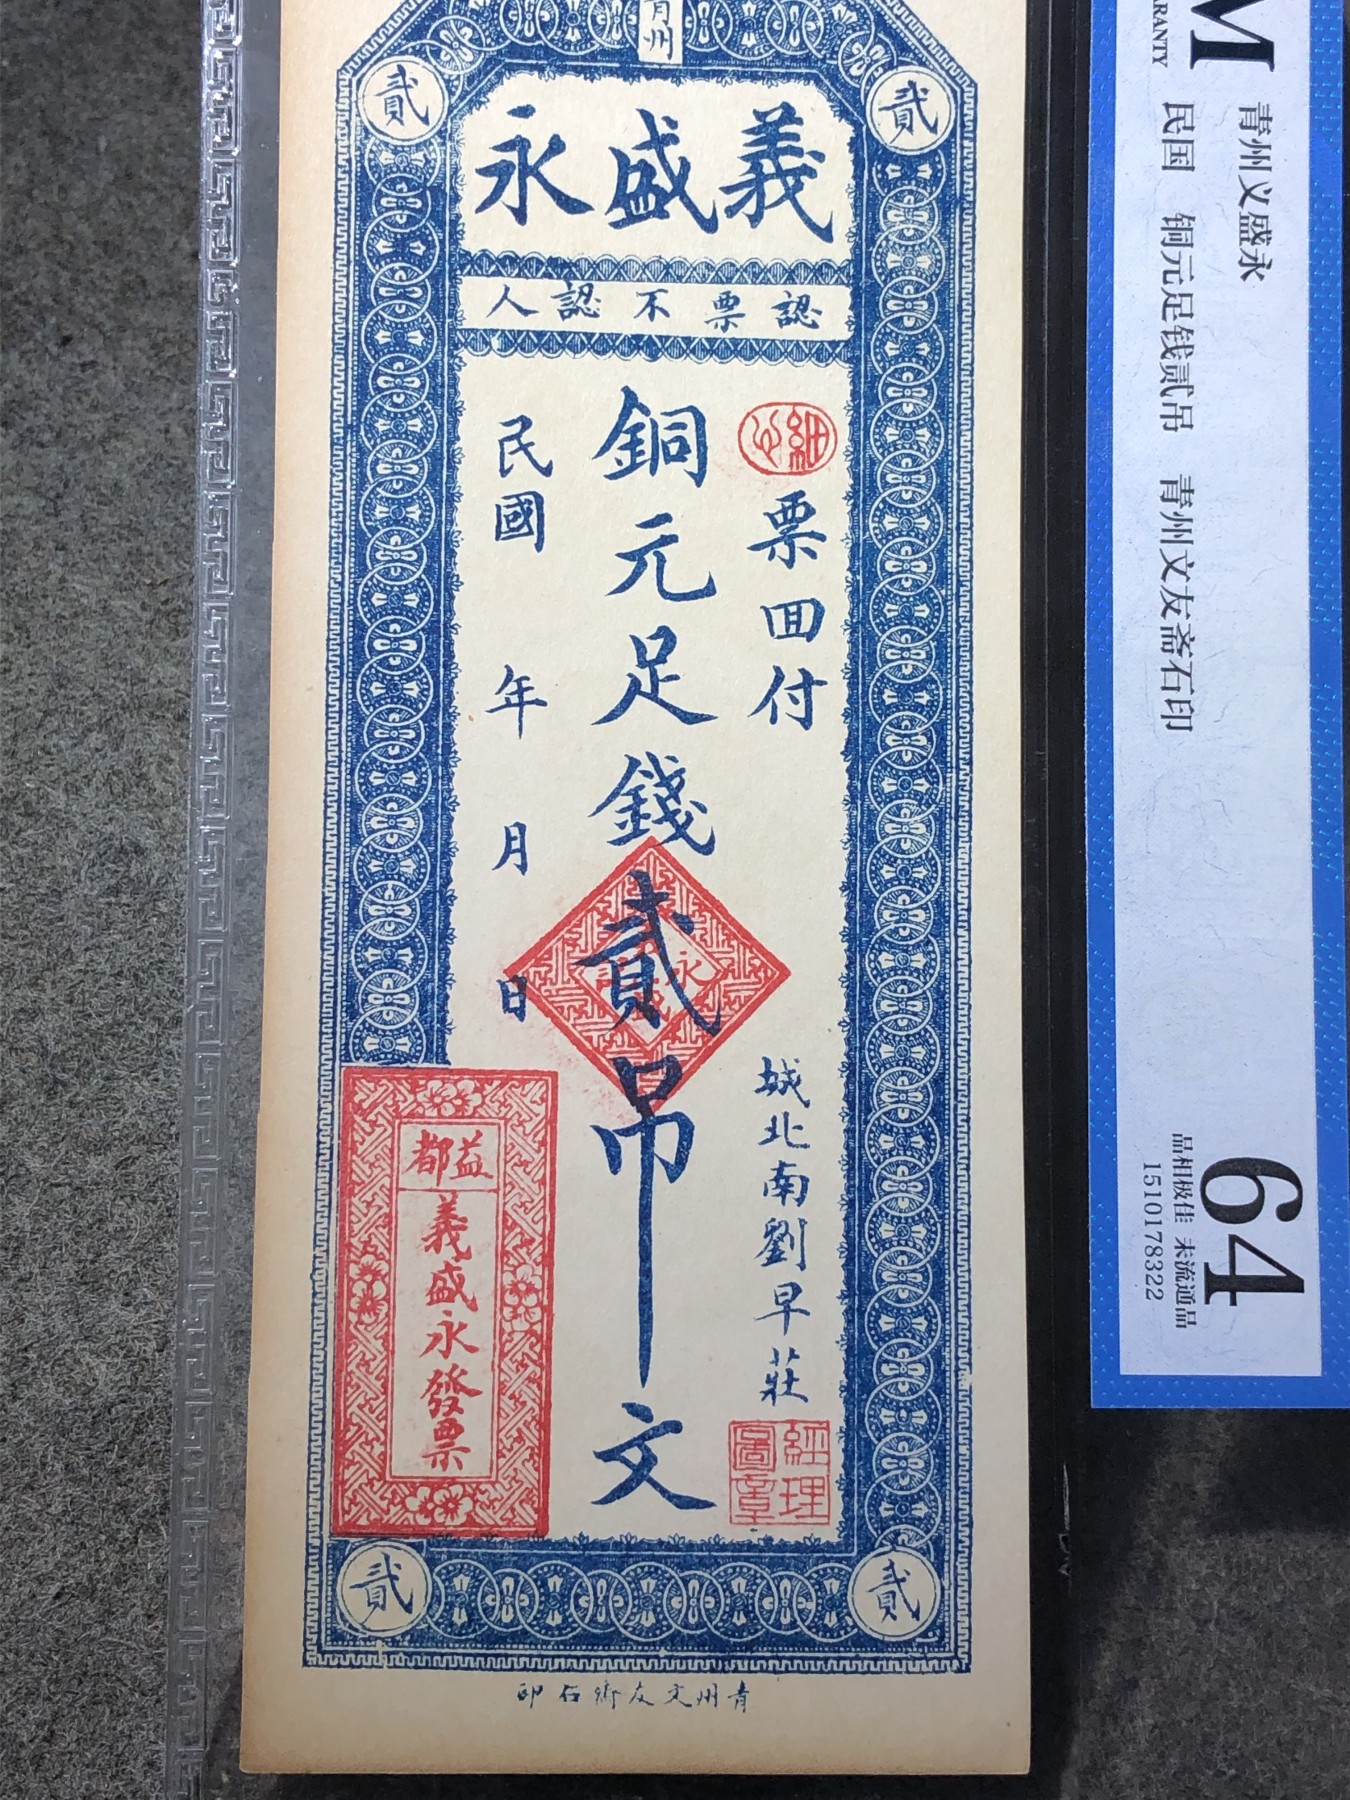 青州
貳
貳
義盛永
認票不認人
細心
票囬付
銅元足錢貳吊文
民國 年 月 日
城北南劉早莊
經理圖章
益都
義盛永發票
永
貳
貳
青州文友齋石印
M
ARANTY
青州义盛永
民国 铜元足钱贰吊 青州文友斋石印
64
品相极佳 未流通品
1510178322